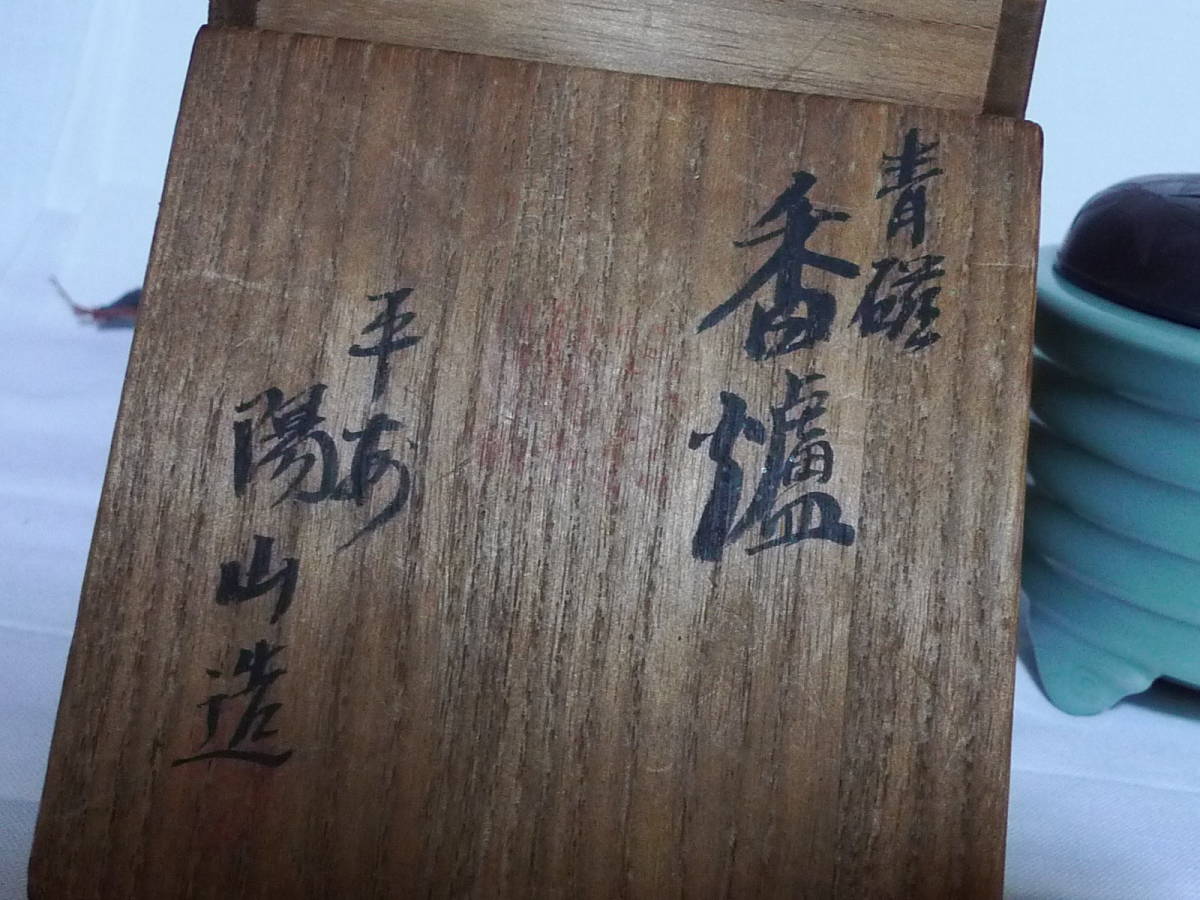 青磁
香爐
平安
陽山造